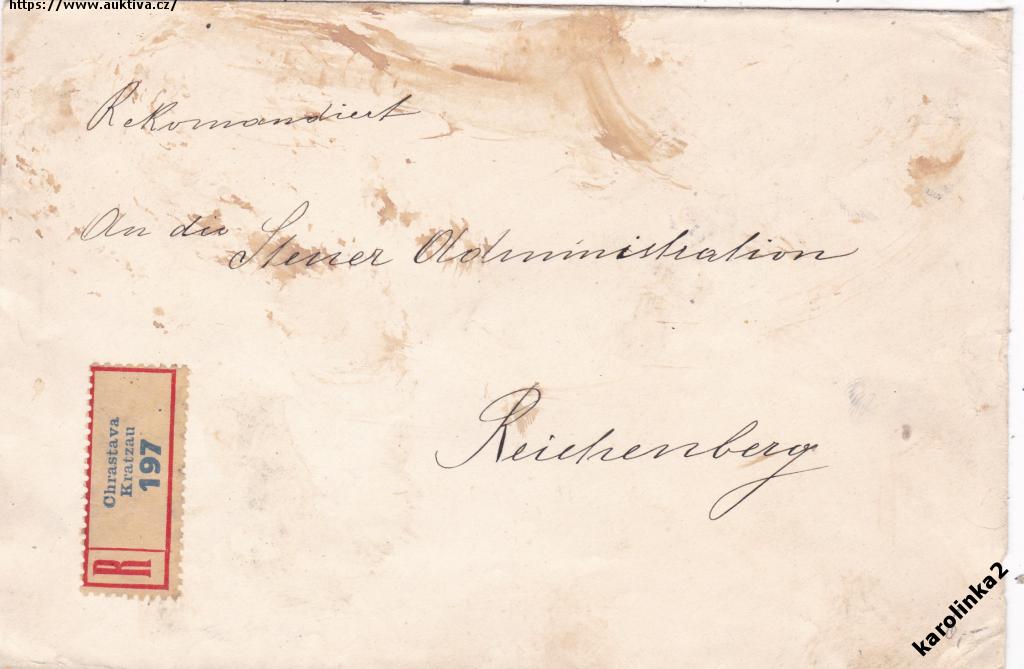 https://www.auktiva.cz/
Rekomandiert
An die
Steuer Administration
Reichenberg
Chrastava
Kratzau
197
R
karolinka2